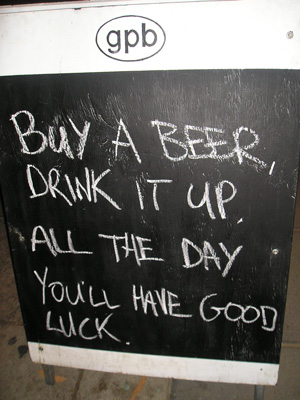 gpb
BUY A BEER,
DRINK IT UP.
ALL THE DAY
YOU'LL HAVE GOOD
LUCK.